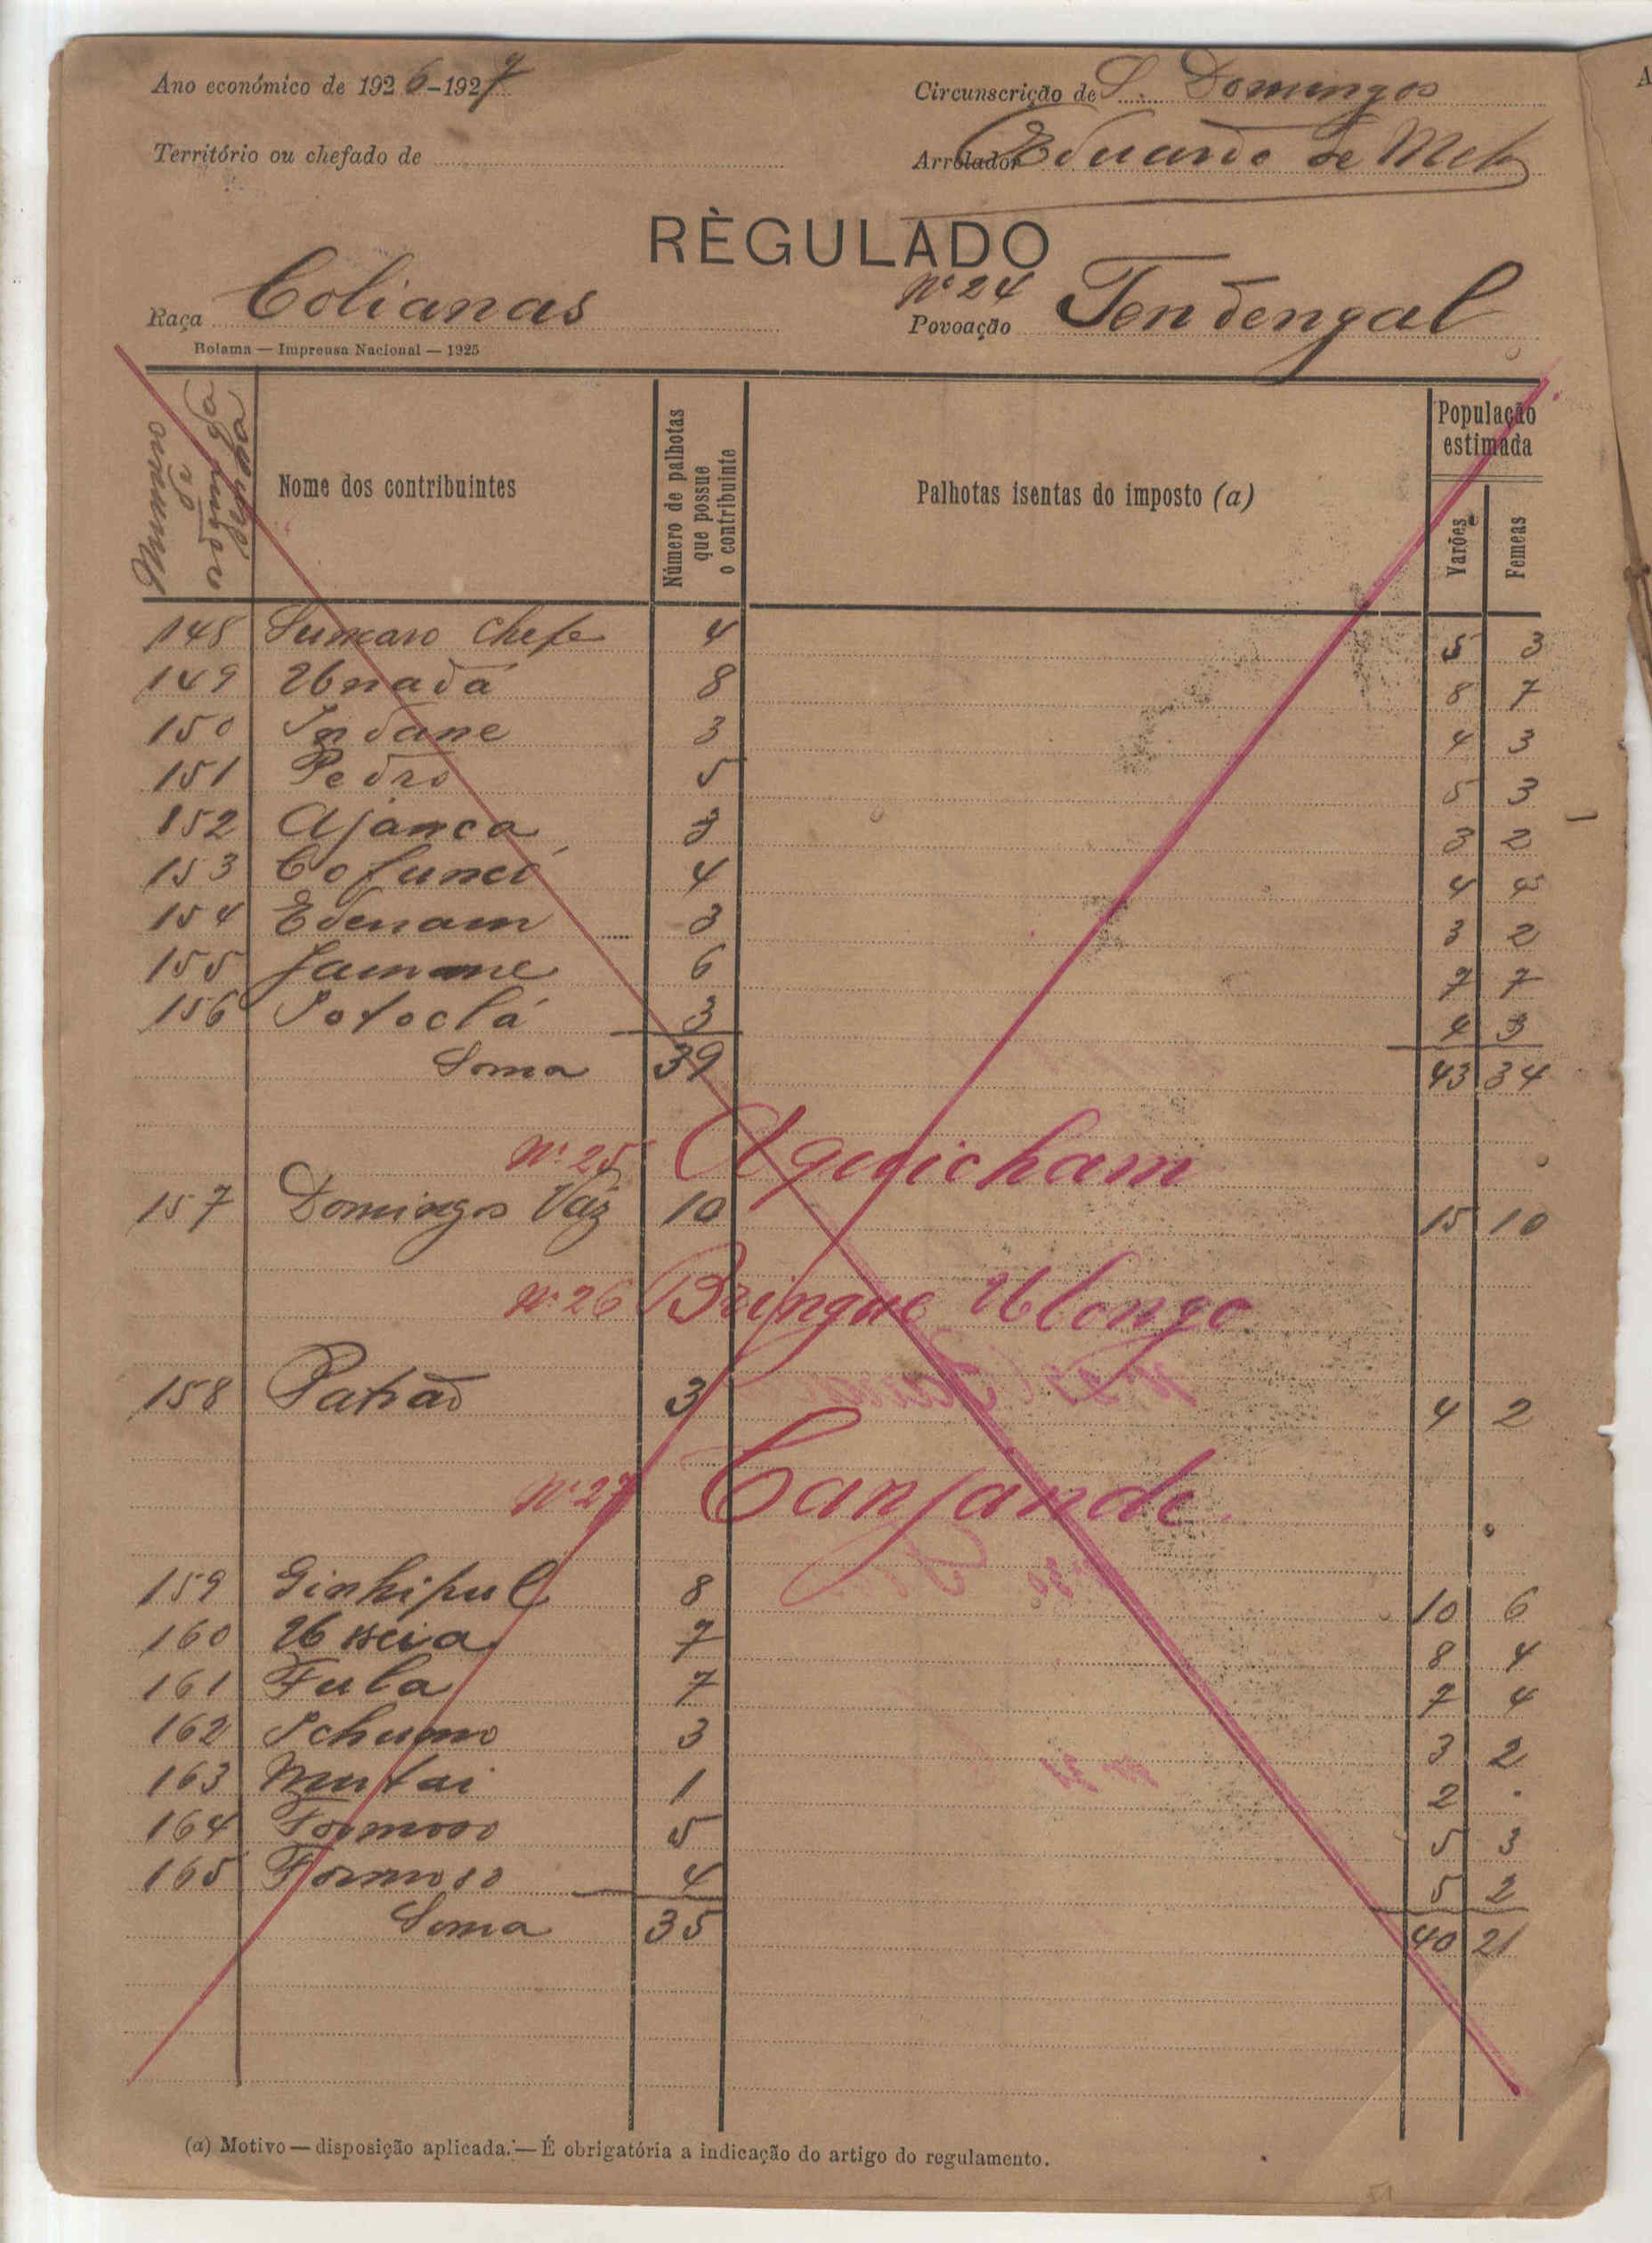 Ano económico de 1926-1927 Circunscrição de S. Domingos
Território ou chefado de Arrolador Eduardo de Melo
RÈGULADO
Raça Colianas Nº 24 Povoação Tendengal
Bolama — Imprensa Nacional — 1925
Numero
Nome dos contribuintes
Número de palhotas que possue o contribuinte
Palhotas isentas do imposto (a)
População estimada
Varões Femeas
148 Sumaro Chefe 4 5 3
149 Unadá 8 8 7
150 Indane 3 4 3
151 Pedro 5 5 3
152 Ajanca 3 3 2
153 Cofunco 4 4 4
154 Edenam 3 3 2
155 Jamome 6 7 7
156 Potoclá 3 4 3
Soma 39 43 34
Nº 25 Aguicham
157 Domingos Vaz 10 15 10
Nº 26 Bringue Ulongo
158 Patrão 3 4 2
Nº 27 Canjande
159 Ginhipul 8 10 6
160 Usseia 7 8 4
161 Fula 7 7 4
162 3 3 2
163 Mutai 1 2 .
164 Formoso 5 5 3
165 Formoso 4 5 2
Soma 35 40 21
(a) Motivo — disposição aplicada. — É obrigatória a indicação do artigo do regulamento.
51